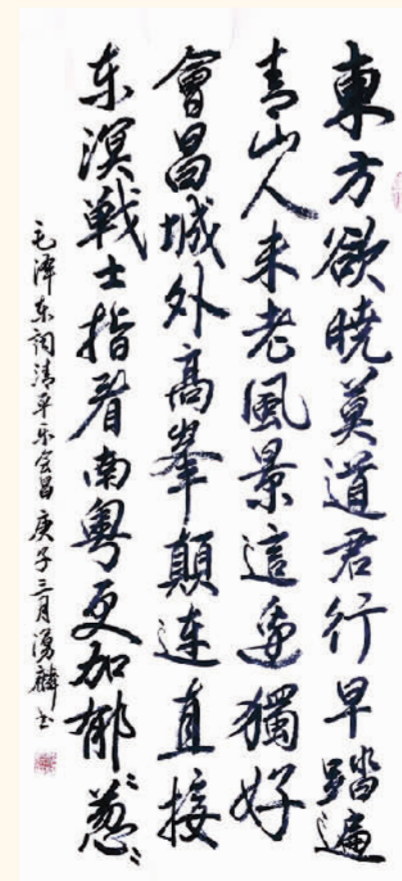 東方欲曉莫道君行早踏遍
青山人未老風景這邊獨好
會昌城外高峯顛连直接
东溟戦士指看南粵更加郁〻葱〻
毛泽东词清平乐会昌 庚子三月湧麟书